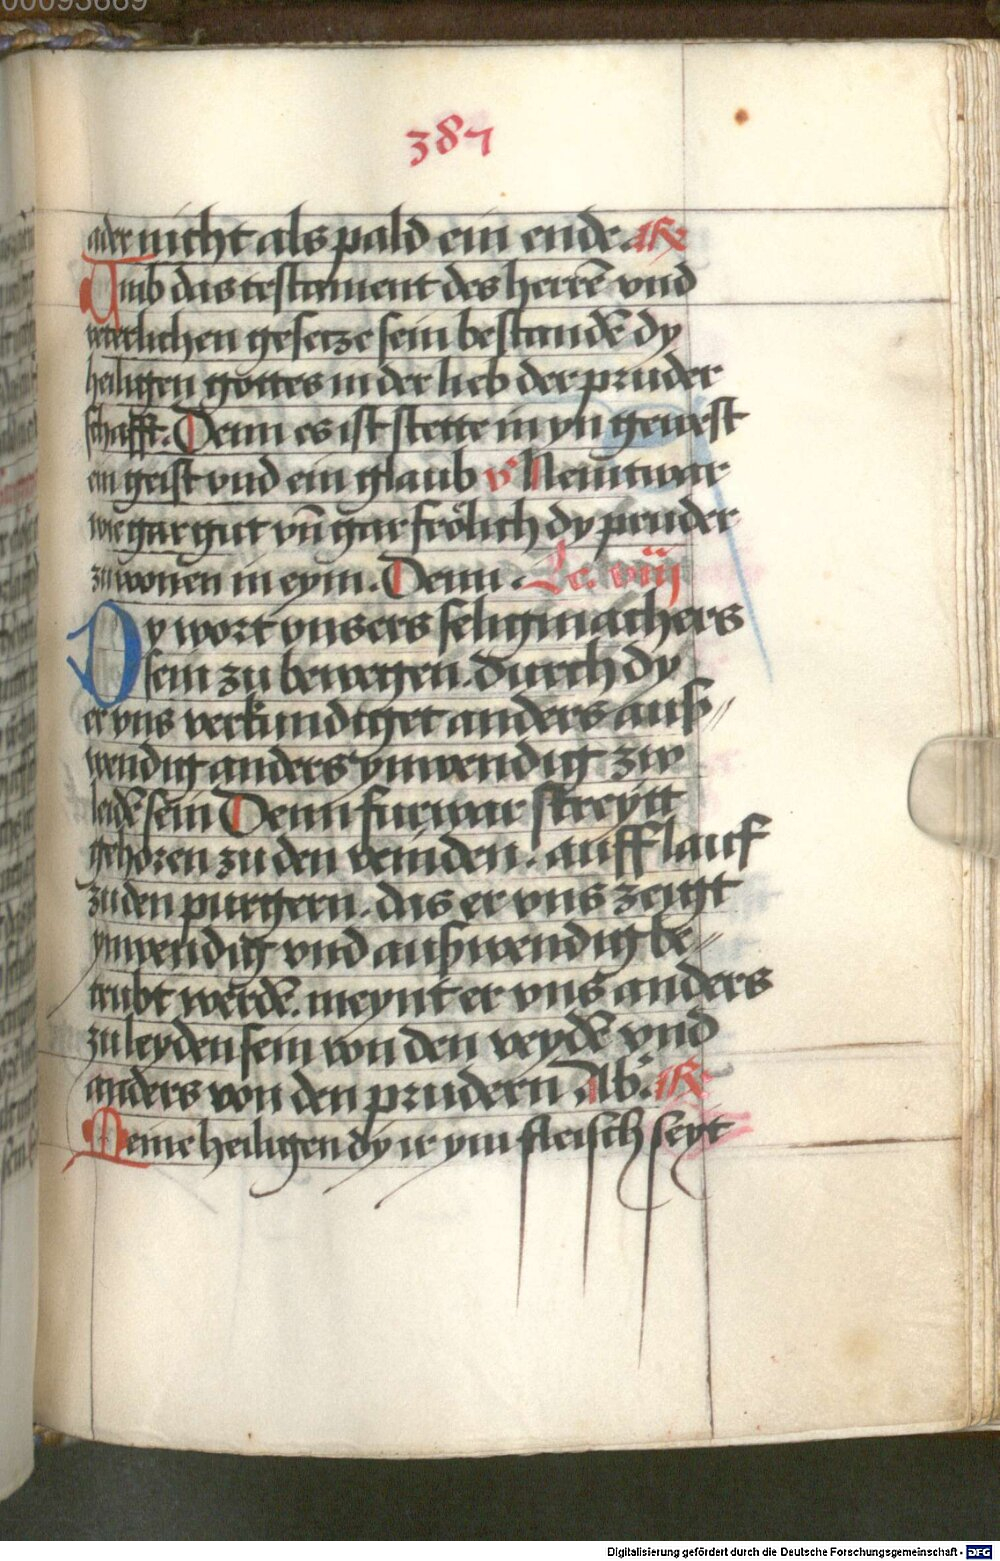 00093669
387
ader nicht als pald ein ende R
Umb das testament des herrē vnd
veterlichen gesetze sein bestandē dy
heiligen gottes in der lieb der pruder
schafft. Denn es ist stette in yn gewest
ein geist vnd ein glaub v Nemt war
wie gar gut vn̄ gar frölich dy pruder
zu wonen in eym. Denn. Lc. viij
Dy wort vnsers seligmachers
sein zu bewegen. durch dy
er vns verkundiget anders auß//
wendig anders ynwendig zw
leidē sein Denn furwar streytt
gehoren zu den veinden. aufflauf
zu den purgern. das er vns zeigt
ynwendig vnd außwendig be//
trubt werdē. meynt er vns anders
zu leyden sein von den veydē vnd
anders von den prudern Ab. R
Meine heiligen dy ir ym fleisch seyt
Digitalisierung gefördert durch die Deutsche Forschungsgemeinschaft - DFG